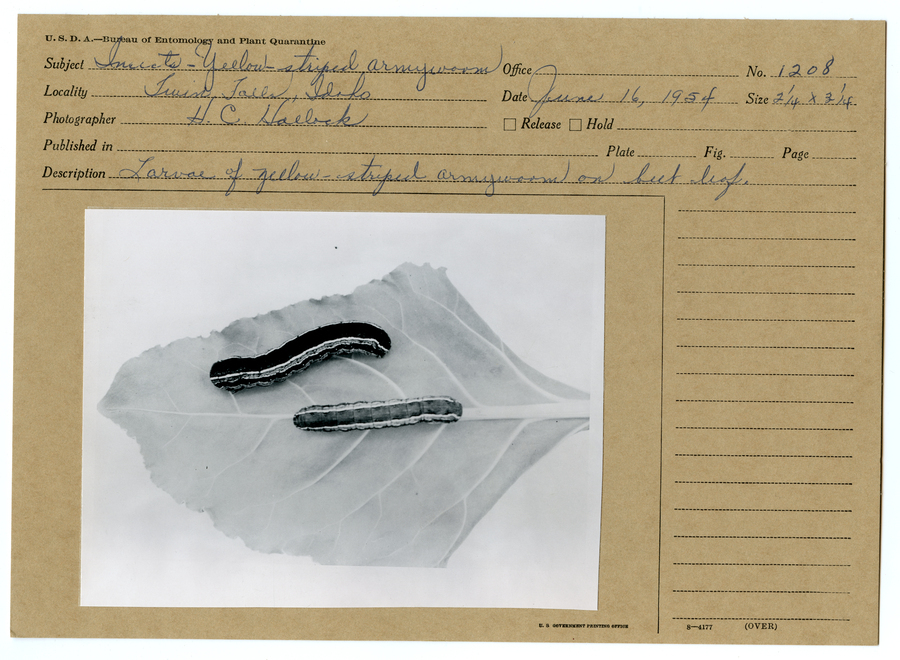 U. S. D. A.—Bureau of Entomology and Plant Quarantine
Subject Insects - Yellow-striped armyworm Office No. 1208
Locality Twin Falls, Idaho Date June 16, 1954 Size 3¼ x 3¼
Photographer H. C. Hallock Release Hold
Published in Plate Fig. Page
Description Larvae of yellow-striped armyworm on beet leaf.
U. S. GOVERNMENT PRINTING OFFICE 8—4177 (OVER)